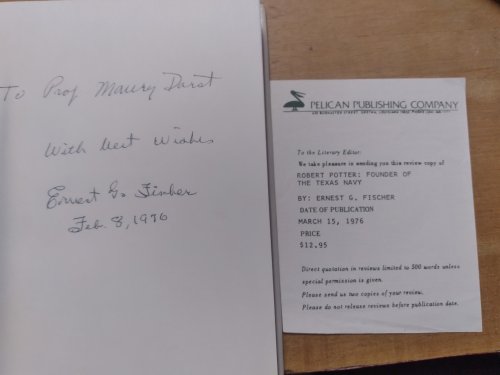 To Prof Maury Darst
With best wishes
Ernest G. Fischer
Feb. 8, 1976
PELICAN PUBLISHING COMPANY
630 BURMASTER STREET, GRETNA, LOUISIANA 70053
To the Literary Editor:
We take pleasure in sending you this review copy of
ROBERT POTTER: FOUNDER OF
THE TEXAS NAVY
BY: ERNEST G. FISCHER
DATE OF PUBLICATION
MARCH 15, 1976
PRICE
$12.95
Direct quotation in reviews limited to 500 words unless
special permission is given.
Please send us two copies of your review.
Please do not release reviews before publication date.